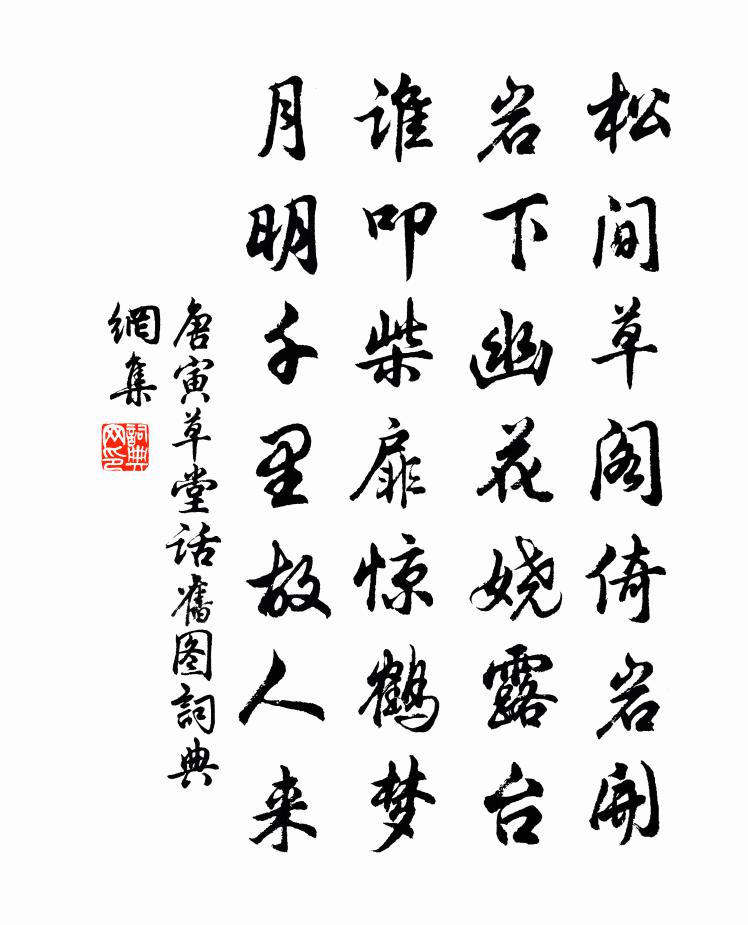 松间草阁倚岩开
岩下幽花娆露台
谁叩柴扉惊鹤梦
月明千里故人来
唐寅草堂话舊图詞典
網集
詞典
网印